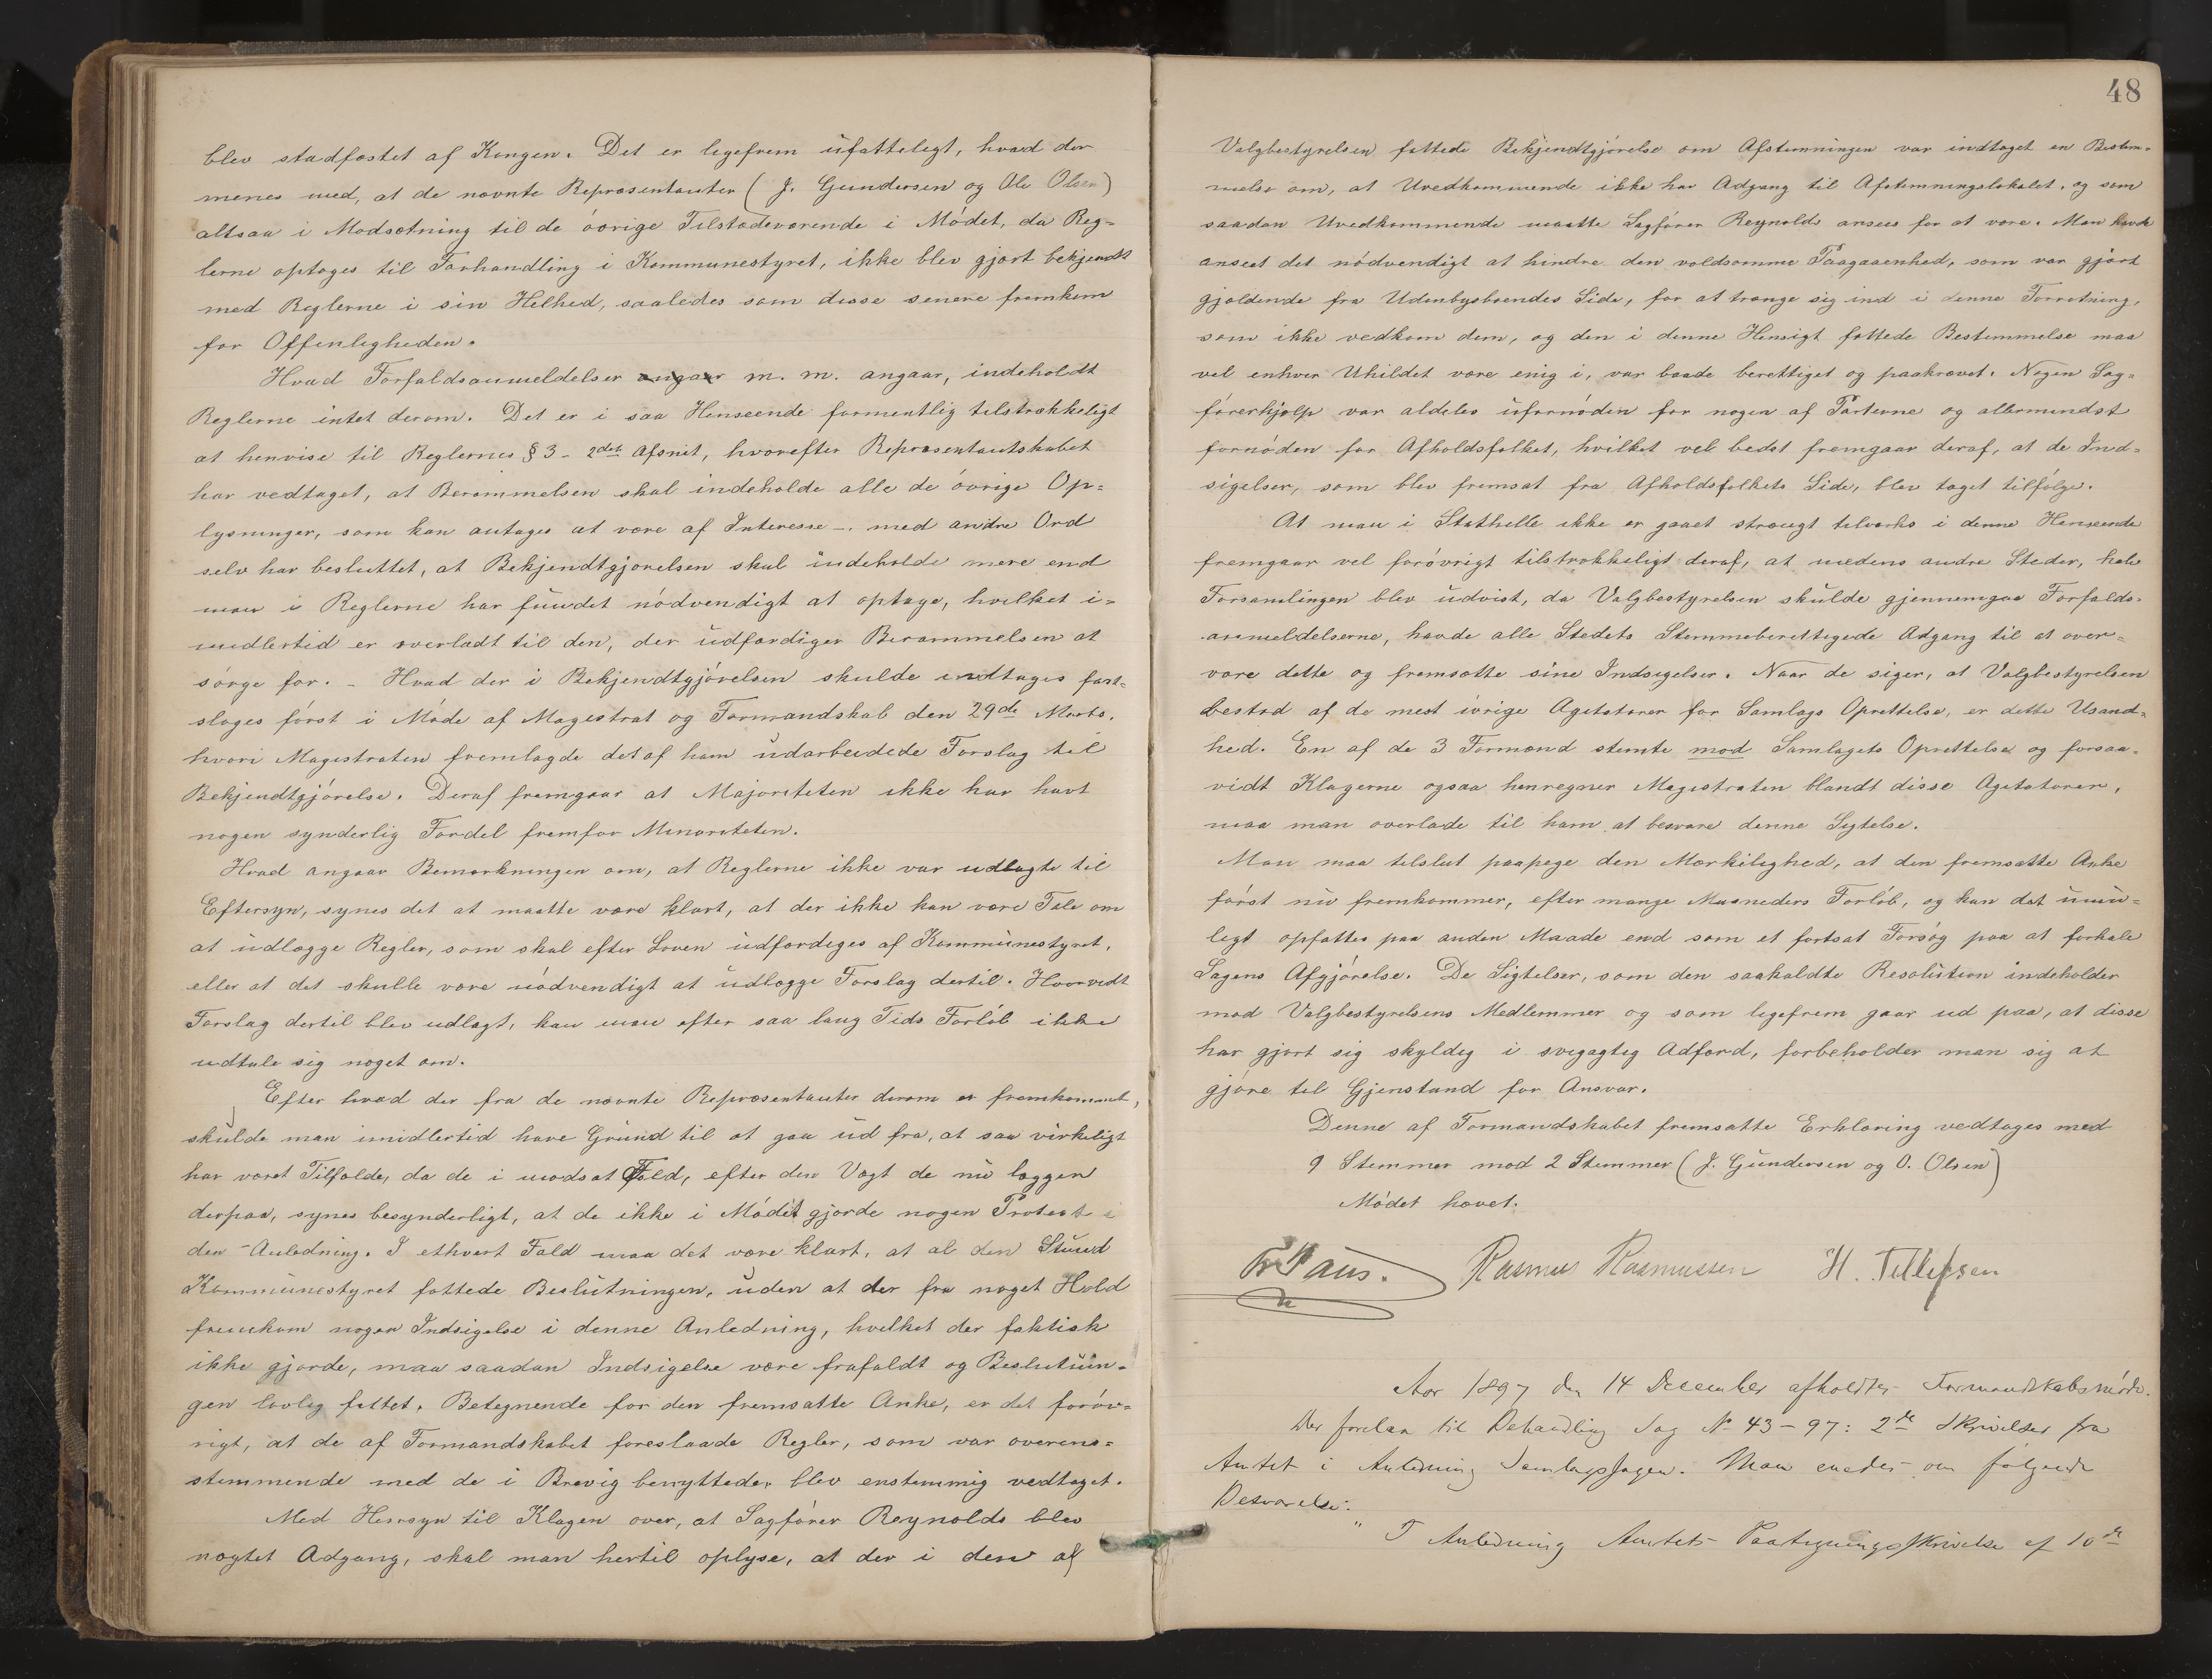 blev stadfæstet af Kongen. Det er ligefrem ufatteligt, hvad der
menes med, at de nævnte Repræsentanter (J. Gundersen og Ole Olsen)
altsaa i Modsætning til de övrige Tilstedeværende i Mödet, da Reg-
lerne optoges til Forhandling i Kommunestyret, ikke blev gjort bekjendt
med Reglerne i sin Helhed, saaledes som disse senere fremkom
for Offenligheden.
Hvad Forfaldsanmeldelser angaar m. m. angaar, indeholdt
Reglerne intet derom. Det er i saa Henseende formentlig tilstrækkeligt
at henvise til Reglernes § 3 - 2det Afsnit, hvorefter Repræsentantskabet
har vedtaget, at Berammelsen skal indeholde alle de övrige Op=
lysninger, som kan antages at være af Interesse -. med andre Ord
selv har besluttet, at Bekjendtgjørelsen skal indeholde mere end
man i Reglerne har fundet nödvendigt at optage, hvilket i=
midlertid er overladt til den, der udfærdiger Berammelsen at
sörge for. - Hvad der i Bekjendtgjörelsen skulde indtages fast=
sloges först i Möde af Magistrat og Formandskab den 29de Marts.
hvori Magistraten fremlagde det af ham udarbeidede Forslag til
Bekjendtgjörelse. Deraf fremgaar at Majoriteten ikke har havt
nogen synderlig Fordel fremfor Minoriteten.
Hvad angaar Bemærkningen om, at Reglerne ikke var udlagte til
Eftersyn, synes det at maatte være klart, at der ikke kan være Tale om
at udlægge Regler, som skal efter Loven udfærdiges af Kommunestyret,
eller at det skulle være nödvendigt at udlægge Forslag dertil. Hvorvidt
Forslag dertil blev udlagt, kan man efter saa lang Tids Forlöb ikke
udtale sig noget om.
Efter hvad der fra de nævnte Repræsentanter derom er fremkommet,
skulde man imidlertid have Grund til at gaa ud fra, at saa virkeligt
har været Tilfælde, da de i modsat Fald, efter den Vægt de nu lægger
derpaa, synes besynderligt, at de ikke i Mödet gjorde nogen Protest i
den Anledning. I ethvert Fald maa det være klart, at al den Stund
Kommunestyret fattede Beslutningen, uden at der fra noget Hold
fremkom nogen Indsigelse i denne Anledning, hvilket der faktisk
ikke gjorde, maa saadan Indsigelse være frafaldt og Beslutnin=
gen lovlig fattet. Betegnende for den fremsatte Anke, er det foröv=
rigt, at de af Formandskabet foreslaade Regler, som var overens=
stemmende med de i Brevig benyttede, blev enstemmig vedtaget.
Med Hensyn til Klagen over, at Sagförer Reynolds blev
nægtet Adgang, skal man hertil oplyse, at der i den af
48
Valgbestyrelsen fattede Bekjendtgjörelse om Afstemningen var indtaget en Bestem=
melse om, at Uvedkommende ikke har Adgang til Afstemningslokalet, og som
saadan Uvedkommende maatte Sagförer Reynolds ansees for at være. Man havde
anseet det nödvendigt at hindre den voldsomme Paagaaenhed, som var gjort
gjældende fra Udenbysboendes Side, for at trænge sig ind i denne Forretning,
som ikke vedkom dem, og den i denne Hensigt fattede Bestemmelse maa
vel enhver Uhildet være enig i, var baade berettiget og paakrævet. Nogen Sag=
förerhjælp var aldeles ufornöden for nogen af Parterne og allermindst
fornöden for Afholdsfolket, hvilket vel bedst fremgaar deraf, at de Ind=
sigelser, som blev fremsat fra Afholdsfolkets Side, blev taget tilfölge.
At man i Stathelle ikke er gaaet strængt tilværks i denne Henseende
fremgaar vel foröxrigt tilstrækkeligt deraf, at medens andre Steder, hele
Forsamlingen blev udvist, da Valgbestyrelsen skulde gjennemgaa Forfalds-
anmeldelserne, havde alle Stedets Stemmeberettigede Adgang til at over=
være dette og fremsætte sine Indsigelser. Naar de siger, at Valgbestyrelsen
bestod af de mest ivrige Agitatorer for Samlags Oprettelse, er dette Usand=
hed. En af de 3 Formænd stemte mod Samlagets Oprettelse og forsaa-
vidt Klagerne ogsaa henregner Magistraten blandt disse Agitatorer,
maa man overlade til ham at besvare denne Sigtelse.
Man maa tilslut paapege den Mærkelighed, at den fremsatte Anke
först nu fremkommer, efter mange Maaneders Forlöb, og kan det umu=
ligt opfattes paa anden Maade end som et fortsat Forsög paa at forhale
Sagens Afgjörelse. De Sigtelser, som den saakaldte Resolution indeholder
mod Valgbestyrelsens Medlemmer og som ligefrem gaar ud paa, at disse
har gjort sig skyldig i svigagtig Adfærd, forbeholder man sig at
gjöre til Gjenstand for Ansvar.
Denne af Formandskabet fremsatte Erklæring vedtages med
9 Stemmer mod 2 Stemmer (J. Gundersen og O. Olsen)
Mödet hævet.
Fr Paus. Rasmus Rasmussen H. Tellefsen
Aar 1897 den 14 December afholdtes Formandskabsmöde.
Der forelaa til Behandling Sag No 43-97: 2de Skrivelser fra
Amtet i Anledning Samlagssagen. Man enedes om fölgende
Besvarelse:
" I Anledning Amtets Paategningsskrivelse af 10de